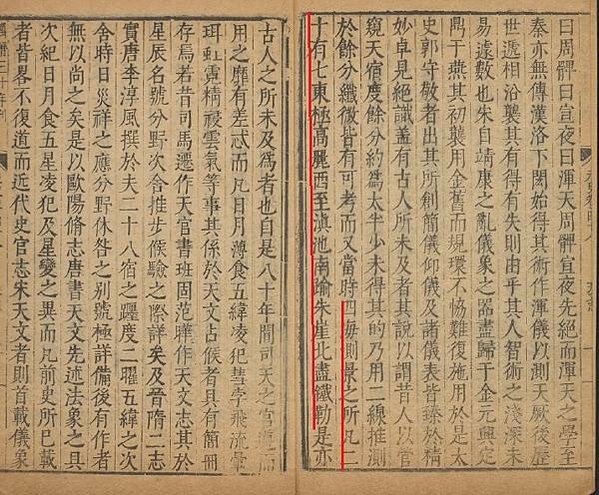 曰周髀曰宣夜曰渾天周髀宣夜先絶而渾天之學至
秦亦無傳漢洛下閎始得其術作渾儀以測天厥後歷
世遞相沿襲其有得有失則由乎其人智術之淺深未
易遽數也宋自靖康之亂儀象之器盡歸于金元興定
鼎于燕其初襲用金舊而規環不協難復施用於是太
史郭守敬者出其所創簡儀仰儀及諸儀表皆臻於精
妙卓見絶識蓋有古人所未及者其說以謂昔人以管
窺天宿度餘分約爲太半少未得其的乃用二線推測
於餘分纖微皆有可考而又當時四海測景之所凡二
十有七東極高麗西至滇池南踰朱崖北盡鐵勒是亦
古人之所未及爲者也自是八十年間司天之官遵而
用之靡有差忒而凡日月薄食五緯凌犯彗孛飛流暈
珥虹霓精祲雲氣等事其係於天文占候者具有簡冊
存焉若昔司馬遷作天官書班固范曄作天文志其於
星辰名號分野次舍推步候驗之際詳矣及晉隋二志
實唐李淳風撰於夫二十八宿之躔度二曜五緯之次
舍時日災祥之應分野休咎之別號極詳備後有作者
無以尚之矣是以歐陽脩志唐書天文先述法象之具
次紀日月食五星凌犯及星變之異而凡前史所已載
者皆畧不復道而近代史官志宋天文者則首載儀象